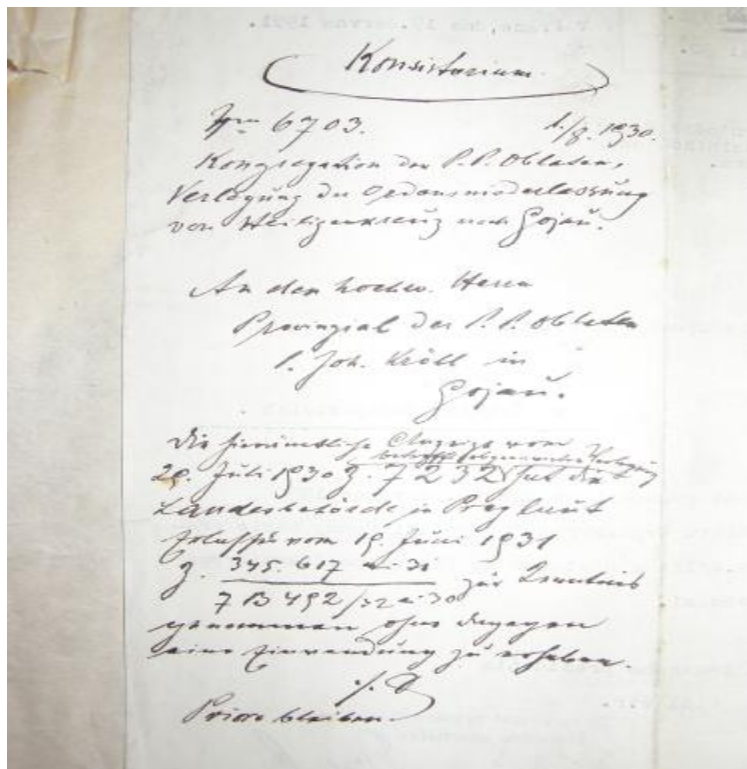 Konsistorium.
6703. 1./8. 1930.
Kongregation der P.P. Oblaten,
Verlegung der Ordensniederlassung
von Heiligenkreuz nach Gojau.
An den hochw. Herrn
Provinzial der P.P. Oblaten
P. Joh. Kröll in
Gojau.
Die hierämtliche Anzeige vom
betreffs obgenannter Verlegung
29. Juli 1930 Z. 7232 hat die
Landesbehörde in Prag laut
Erlasses vom 19. Juni 1931
Z. 345.617 ai 31
7 B 492/32 ai 30 zur Kenntnis
genommen ohne dagegen
eine Einwendung zu erheben.
Priora bleiben.